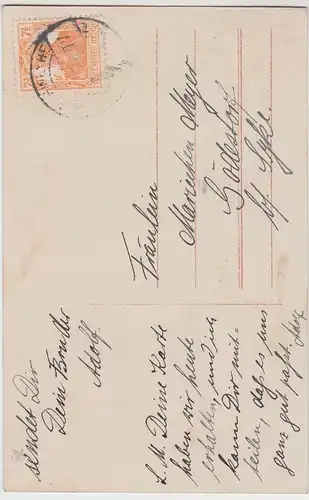 Fräulein
Mariechen Meyer
Gödestorf
by Syke.
L. M. Deine Karte
haben wir heute
erhalten, und ich
kann Dir mit-
teilen, daß es uns
ganz gut paßt.
sendet Dir
Dein Bruder
Adolf.